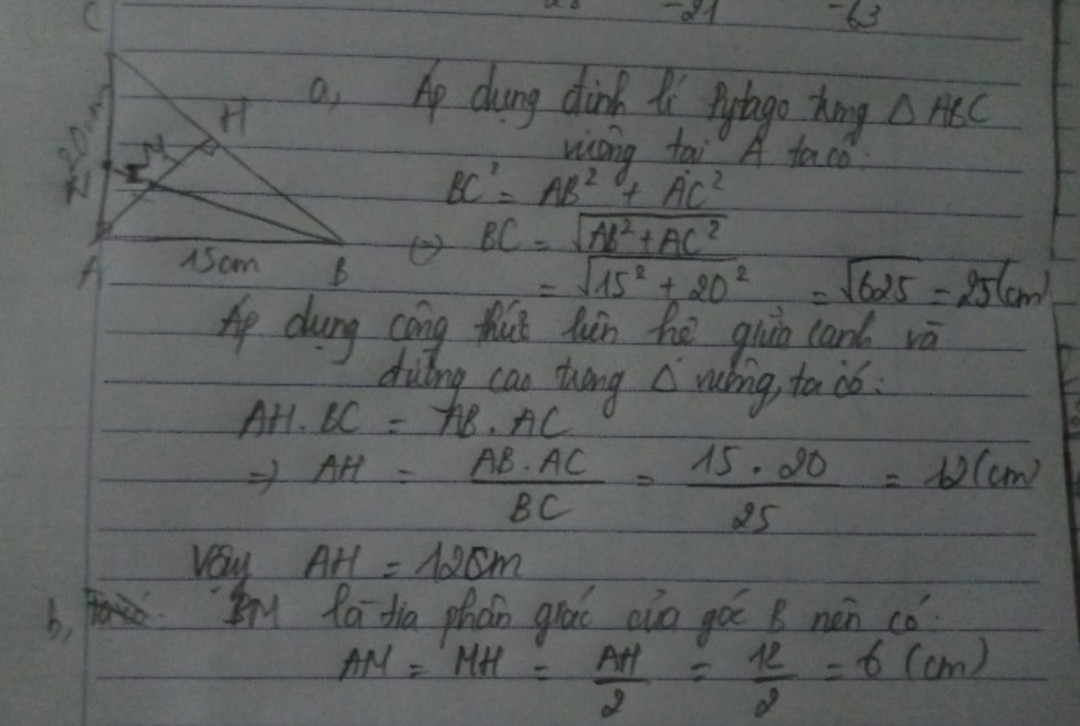 -21 -63
C
H
20cm
M
A 15cm B
a, Áp dụng định lí Pytago trong △ ABC
vuông tại A ta có:
BC² = AB² + AC²
(=) BC = √AB² + AC²
= √15² + 20² = √625 = 25(cm)
Áp dụng công thức liên hệ giữa cạnh và
đường cao trong △ vuông, ta có:
AH. BC = AB. AC
=) AH = AB. AC / BC = 15 . 20 / 25 = 12(cm)
Vậy AH = 12cm
b, BM là tia phân giác của góc B nên có:
AM = MH = AH / 2 = 12 / 2 = 6 (cm)